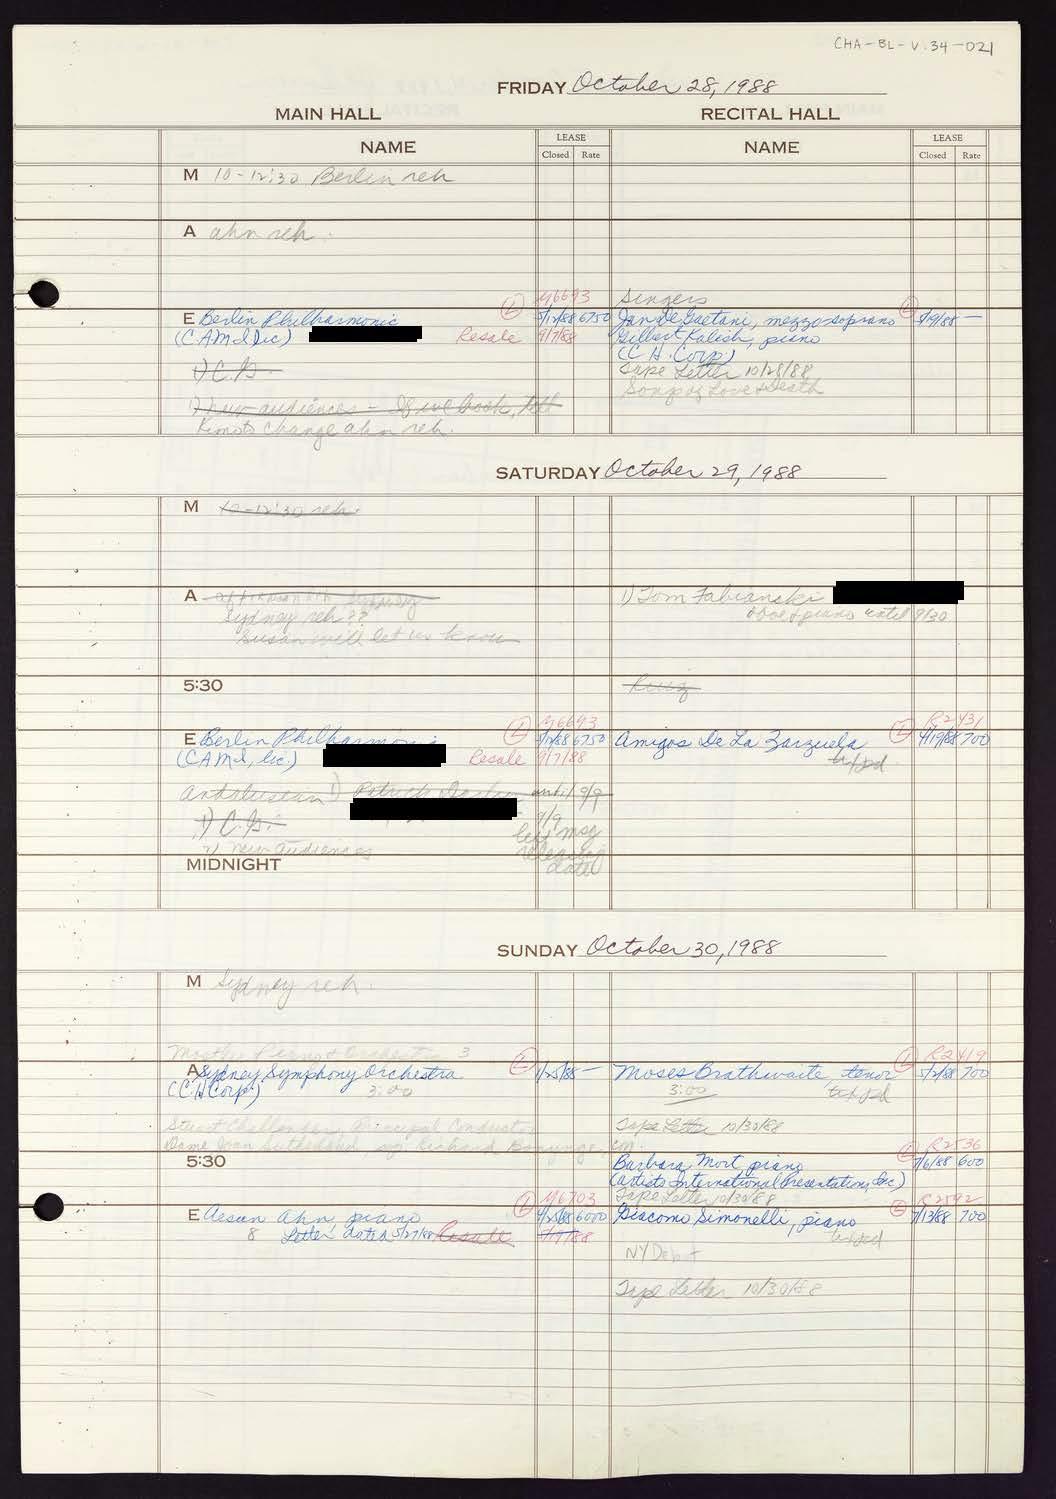 CHA-BL-V.34-021
FRIDAY October 28, 1988
MAIN HALL RECITAL HALL
NAME LEASE NAME LEASE
Closed Rate Closed Rate
M 10-12:30 Berlin reh
A ahn reh.
M6693 Singers
E Berlin Philharmonic L 5/12/88 6750 Jan De Gaetani, mezzo-soprano L 5/19/88 —
(CAMI, lic) Resale 9/7/88 Gilbert Kalish, piano
(C.H. Corp)
1) C.G. Tape Letter 10/28/88
Songs of Love & Death
1) New audiences - If we book, tell
Kimoto change ahn reh.
SATURDAY October 29, 1988
M 10-12:30 reh.
A afternoon reh Sydney 1) Tom Fabianski
Sydney reh?? oboe & piano until 9/30
Susan will let us know
5:30 Ruiz
M6693 R2431
E Berlin Philharmonic L 5/12/88 6750 Amigos De La Zarzuela L 4/19/88 700
(CAMI, lic.) Resale 9/7/88 txpd
Andalusian 1) Patrick until 9/9
1) C.G. 9/9
left msg
2) New audiences releasing
MIDNIGHT date
SUNDAY October 30, 1988
M Sydney reh.
Mostly Piano & Orchestra 3 R2419
A Sydney Symphony Orchestra L 1/25/88 — Moses Brathwaite, tenor L 5/12/88 700
(C.H. Corp) 3:00 3:00 txpd
Stuart Challender, Principal Conductor Tape Letter 10/30/88
Dame Joan Sutherland, sop, Richard Bonynge, cn.
R2536
5:30 Barbara Mort, piano L 7/6/88 600
(Artists International Presentations, Inc)
M6703 Tape Letter 10/30/88 R2592
E Aesun Ahn, piano L 4/25/88 6000 Giacomo Simonelli, piano L 7/13/88 700
8 Letter dated 5/27/88 Resale 9/7/88 txpd
NY Debut
Tape Letter 10/30/88